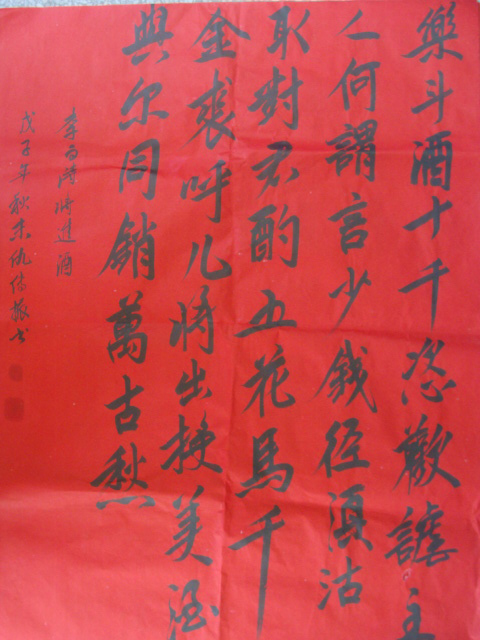 樂斗酒十千恣歡謔主
人何謂言少錢徑須沽
取對君酌五花馬千
金裘呼儿将出换美酒
與尔同銷萬古愁
李白詩将進酒
戊子年秋末仇書